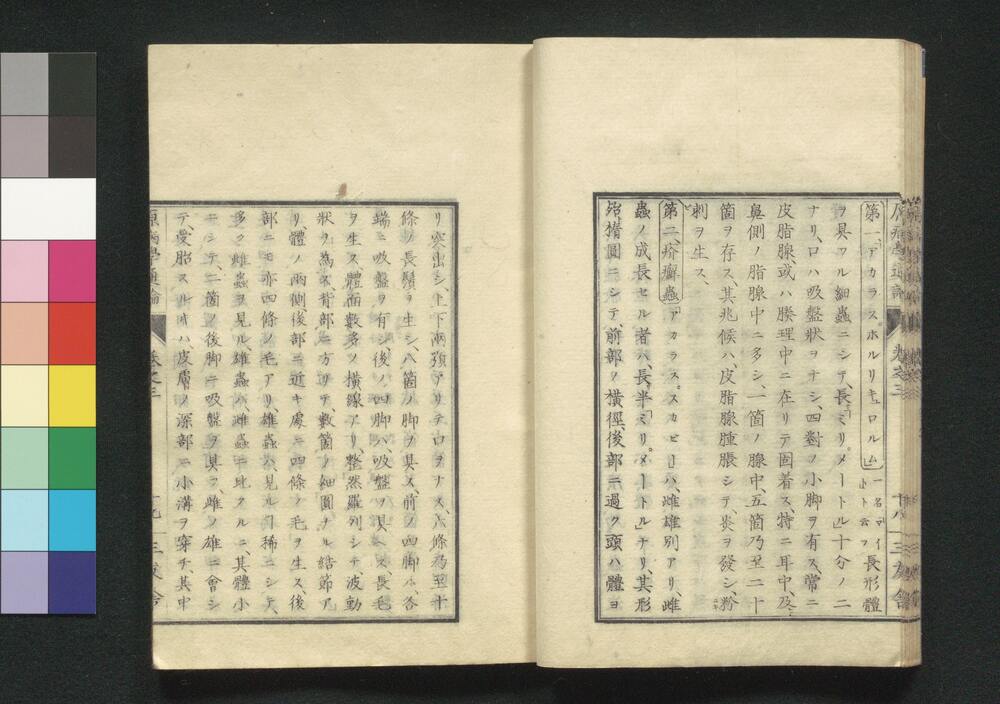 第一「アカラスホルリキュロルム」一名「マイト」ト云フ長形體
ヲ具ワル細蟲ニシテ、長「ミリメートル」十分ノ二
ナリ、口ハ吸盤狀ヲナシ、四對ノ小脚ヲ有ス、常ニ
皮脂腺或ハ腠理中ニ在リテ固着ス、特ニ耳中、及
鼻側ノ脂腺中ニ多シ、一箇ノ腺中、五箇乃至二十
箇ヲ存ス、其兆候ハ、皮脂腺腫脹シテ、炎ヲ發シ、粉
刺ヲ生ス、
第二、疥癬蟲「アカラススカビー」ハ、雌雄別アリ、雌
蟲ノ成長セル者ハ、長半「ミリメートル」ナリ、其形
殆橢圓ニシテ、前部ノ橫徑、後部ニ過ク、頭ハ體ヨ
リ突出シ、上下兩顎アリテ口ヲナス、六條乃至十
條ノ長鬚ヲ生シ、八箇ノ脚ヲ具ス、前ノ四脚ハ、各
端ニ吸盤ヲ有シ、後ノ四脚ハ吸盤ヲ具ヘス、長毛
ヲ生ス、體面數多ノ橫線アリ、整然羅列シテ、波動
狀ヲ為ス、背部ニ方リテ、數箇ノ細圓ナル結節ア
リ、體ノ兩側後部ニ近キ處ニ四條ノ毛ヲ生ス、後
部ニモ亦四條ノ毛アリ、雄蟲ハ、見ル叓稀ニシテ、
多ク雌蟲ヲ見ル、雄蟲ハ、雌蟲ニ比スルニ、其體小
ニシテ、二箇ノ後脚ニ吸盤ヲ具フ、雌ノ雄ニ會シ
テ、受胎スル片ハ、皮膚ノ深部ニ小溝ヲ穿チ、其中
原病學通論 卷之三 十九 三友舎